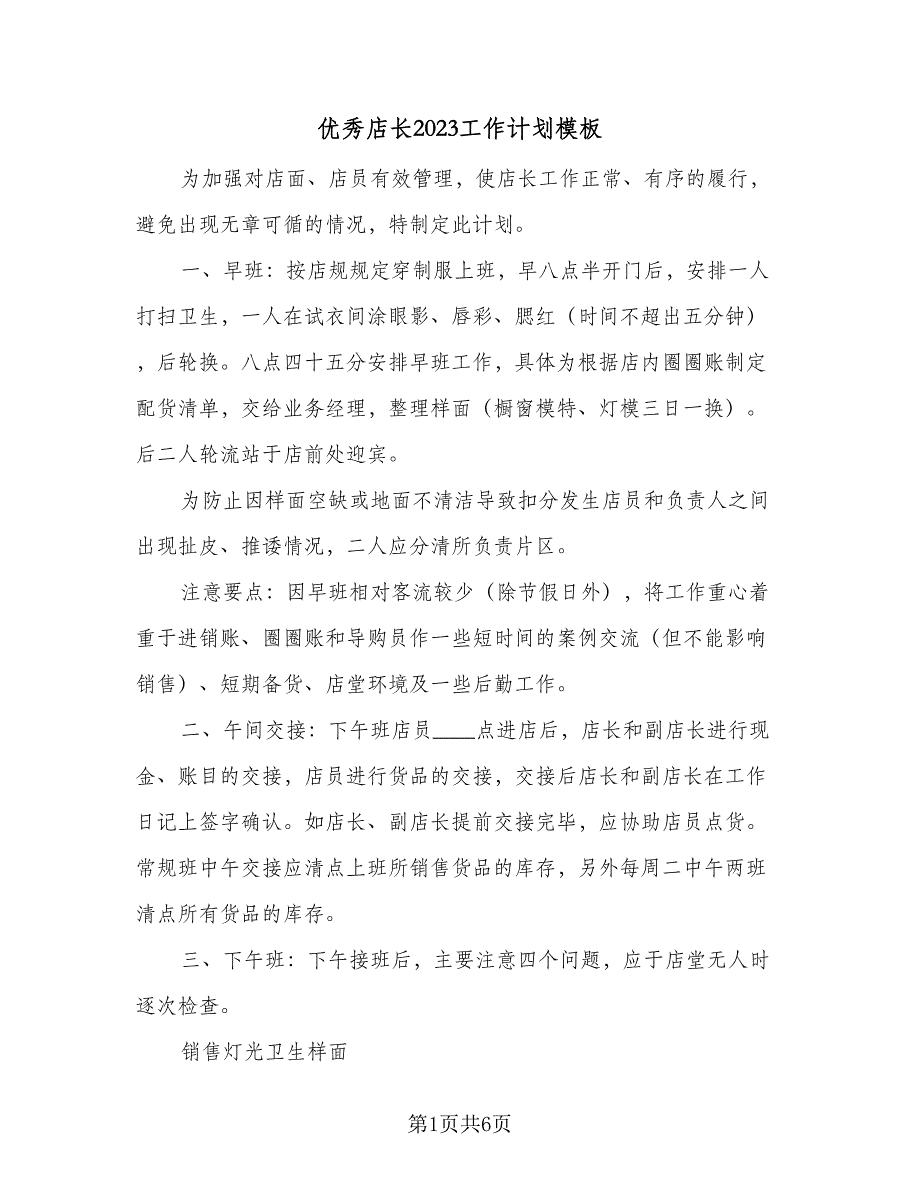 优秀店长2023工作计划模板
为加强对店面、店员有效管理，使店长工作正常、有序的履行，
避免出现无章可循的情况，特制定此计划。
一、早班：按店规规定穿制服上班，早八点半开门后，安排一人
打扫卫生，一人在试衣间涂眼影、唇彩、腮红（时间不超出五分钟）
，后轮换。八点四十五分安排早班工作，具体为根据店内圈圈账制定
配货清单，交给业务经理，整理样面（橱窗模特、灯模三日一换）。
后二人轮流站于店前处迎宾。
为防止因样面空缺或地面不清洁导致扣分发生店员和负责人之间
出现扯皮、推诿情况，二人应分清所负责片区。
注意要点：因早班相对客流较少（除节假日外），将工作重心着
重于进销账、圈圈账和导购员作一些短时间的案例交流（但不能影响
销售）、短期备货、店堂环境及一些后勤工作。
二、午间交接：下午班店员____点进店后，店长和副店长进行现
金、账目的交接，店员进行货品的交接，交接后店长和副店长在工作
日记上签字确认。如店长、副店长提前交接完毕，应协助店员点货。
常规班中午交接应清点上班所销售货品的库存，另外每周二中午两班
清点所有货品的库存。
三、下午班：下午接班后，主要注意四个问题，应于店堂无人时
逐次检查。
销售灯光卫生样面
第1页共6页